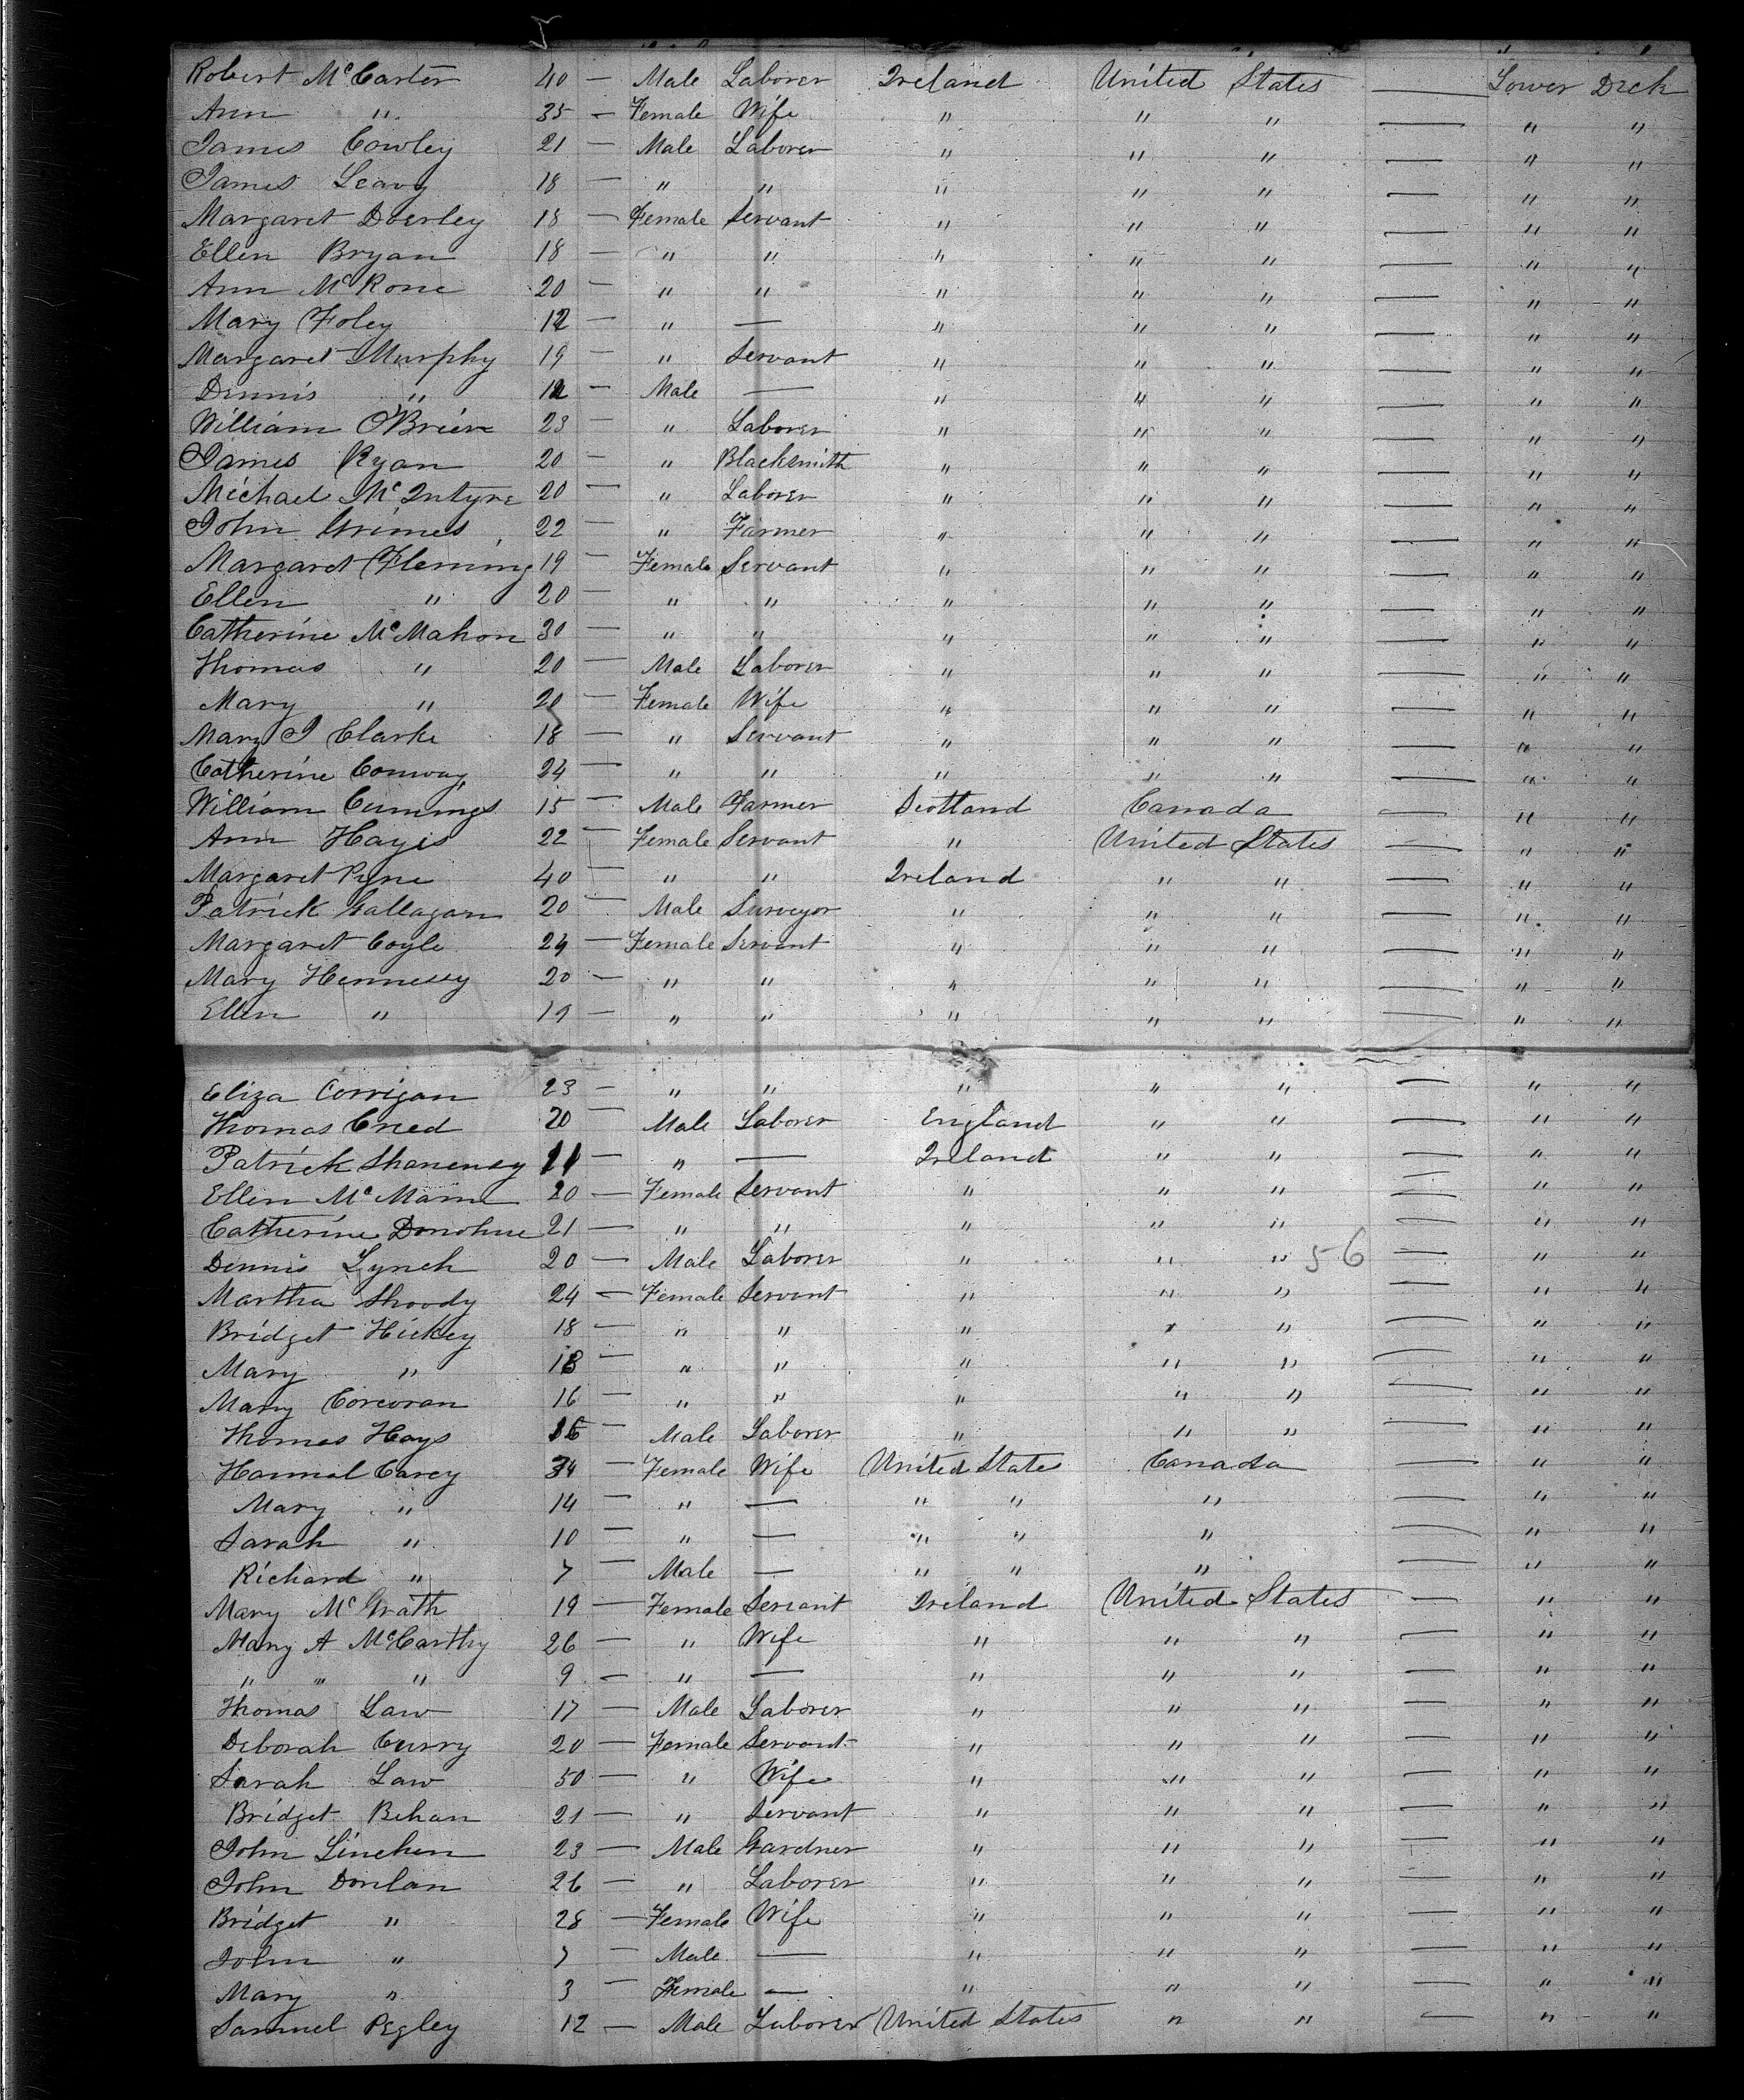 5
Robert McCarter 40 — Male Laborer Ireland United States — Lower Deck
Ann " 35 — Female Wife " " " — " "
James Cowley 21 — Male Laborer " " " — " "
James Leavy 18 — " " " " " — " "
Margaret Doerley 18 — Female Servant " " " — " "
Ellen Bryan 18 — " " " " " — " "
Ann McRone 20 — " " " " " — " "
Mary Foley 12 — " — " " " — " "
Margaret Murphy 19 — " Servant " " " — " "
Dennis " 12 — Male — " " " — " "
William O'Brien 23 — " Laborer " " " — " "
James Ryan 20 — " Blacksmith " " " — " "
Michael McIntyre 20 — " Laborer " " " — " "
John Grimes 22 — " Farmer " " " — " "
Margaret Fleming 19 — Female Servant " " " — " "
Ellen " 20 — " " " " " — " "
Catherine McMahon 30 — " " " " " — " "
Thomas " 20 — Male Laborer " " " — " "
Mary " 20 — Female Wife " " " — " "
Mary J Clarke 18 — " Servant " " " — " "
Catherine Conway 24 — " " " " " — " "
William Cumings 15 — Male Farmer Scotland Canada — " "
Ann Hayes 22 — Female Servant " United States — " "
Margaret Pyne 40 — " " Ireland " " — " "
Patrick Gallagan 20 — Male Surveyor " " " — " "
Margaret Coyle 24 — Female Servant " " " — " "
Mary Hennessy 20 — " " " " " — " "
Ellen " 19 — " " " " " — " "
Eliza Corrigan 23 — " " " " " — " "
Thomas Creed 20 — Male Laborer England " " — " "
Patrick Shanensy 11 — " — Ireland " " — " "
Ellen McMann 20 — Female Servant " " " — " "
Catherine Donohue 21 — " " " " " — " "
Dennis Lynch 20 — Male Laborer " " " 56 — " "
Martha Shoody 24 — Female Servant " " " — " "
Bridget Hickey 18 — " " " " " — " "
Mary " 18 — " " " " " — " "
Mary Corcoran 16 — " " " " " — " "
Thomas Hays 16 — Male Laborer " " " — " "
Hannah Carey 34 — Female Wife United States Canada — " "
Mary " 14 — " — " " " — " "
Sarah " 10 — " — " " " — " "
Richard " 7 — Male — " " " — " "
Mary McGrath 19 — Female Servant Ireland United States — " "
Mary A McCarthy 26 — " Wife " " " — " "
" " " 9 — " — " " " — " "
Thomas Law 17 — Male Laborer " " " — " "
Deborah Curry 20 — Female Servant " " " — " "
Sarah Law 50 — " Wife " " " — " "
Bridget Behan 21 — " Servant " " " — " "
John Linehen 23 — Male Gardner " " " — " "
John Donlan 26 — " Laborer " " " — " "
Bridget " 28 — Female Wife " " " — " "
John " 7 — Male — " " " — " "
Mary " 3 — Female — " " " — " "
Samuel Pegley 12 — Male Laborer United States " " — " "